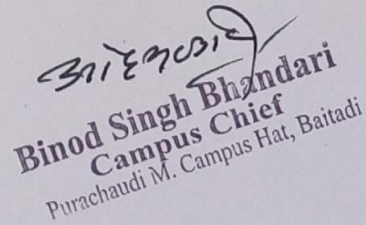 Binod Singh Bhandari
Campus Chief
Purachaudi M. Campus Hat, Baitadi